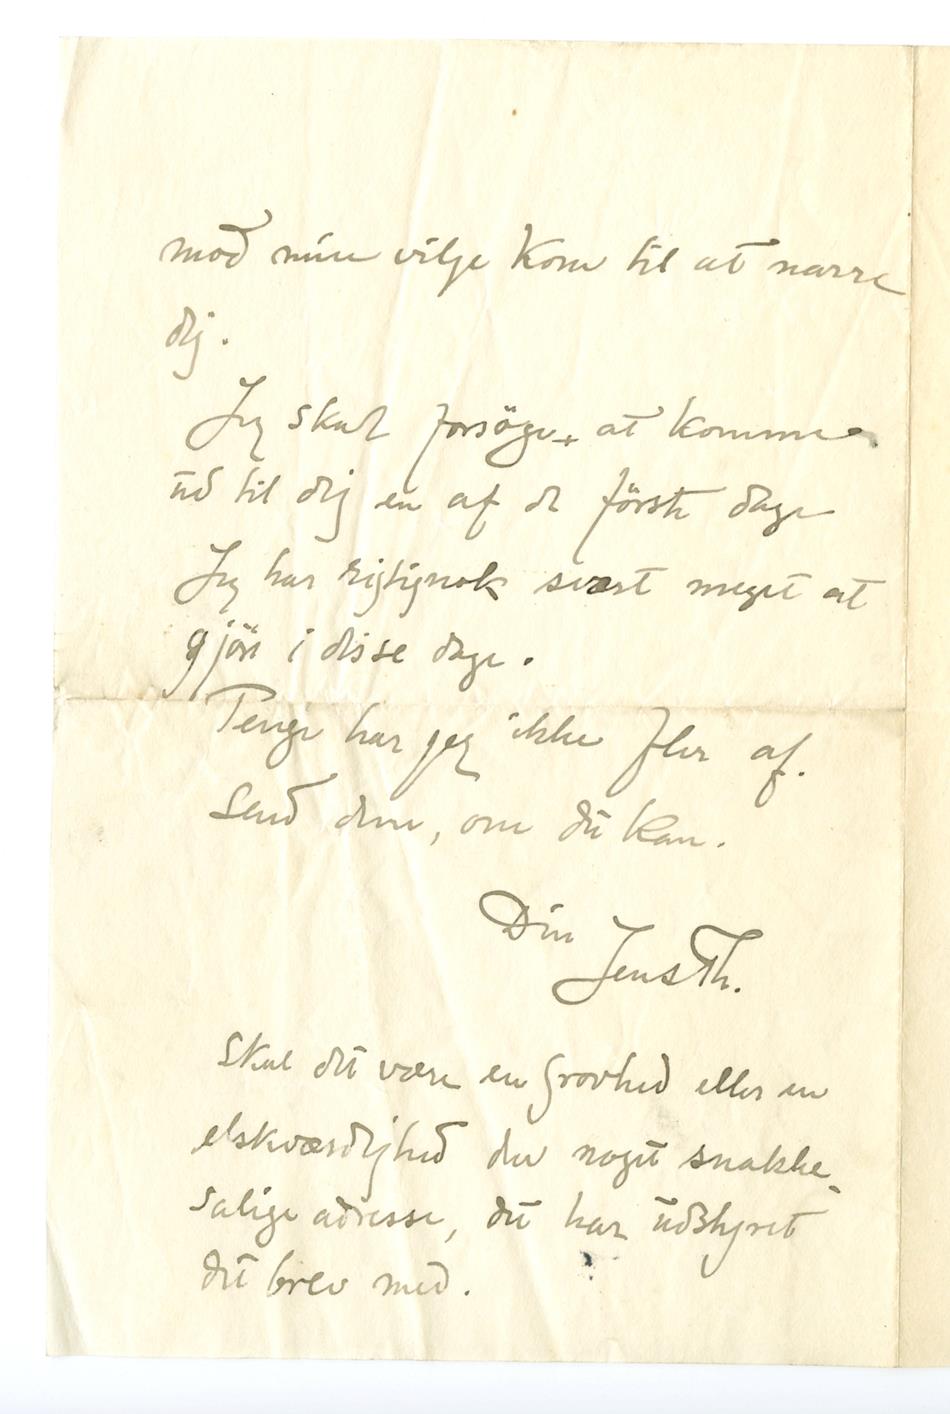 mod min vilje kom til at narre
dig.
Jeg skal forsöge at komme
ud til dig en af de förste dage
Jeg har rigtignok svært meget at
gjöre i disse dage.
Penge har jeg ikke fler af.
Send dem, om du kan.
Din
Jens Th.
Skal det være en grovhed eller en
elskværdighed den noget snakke-
salige adresse, du har udstyret
dit brev med.